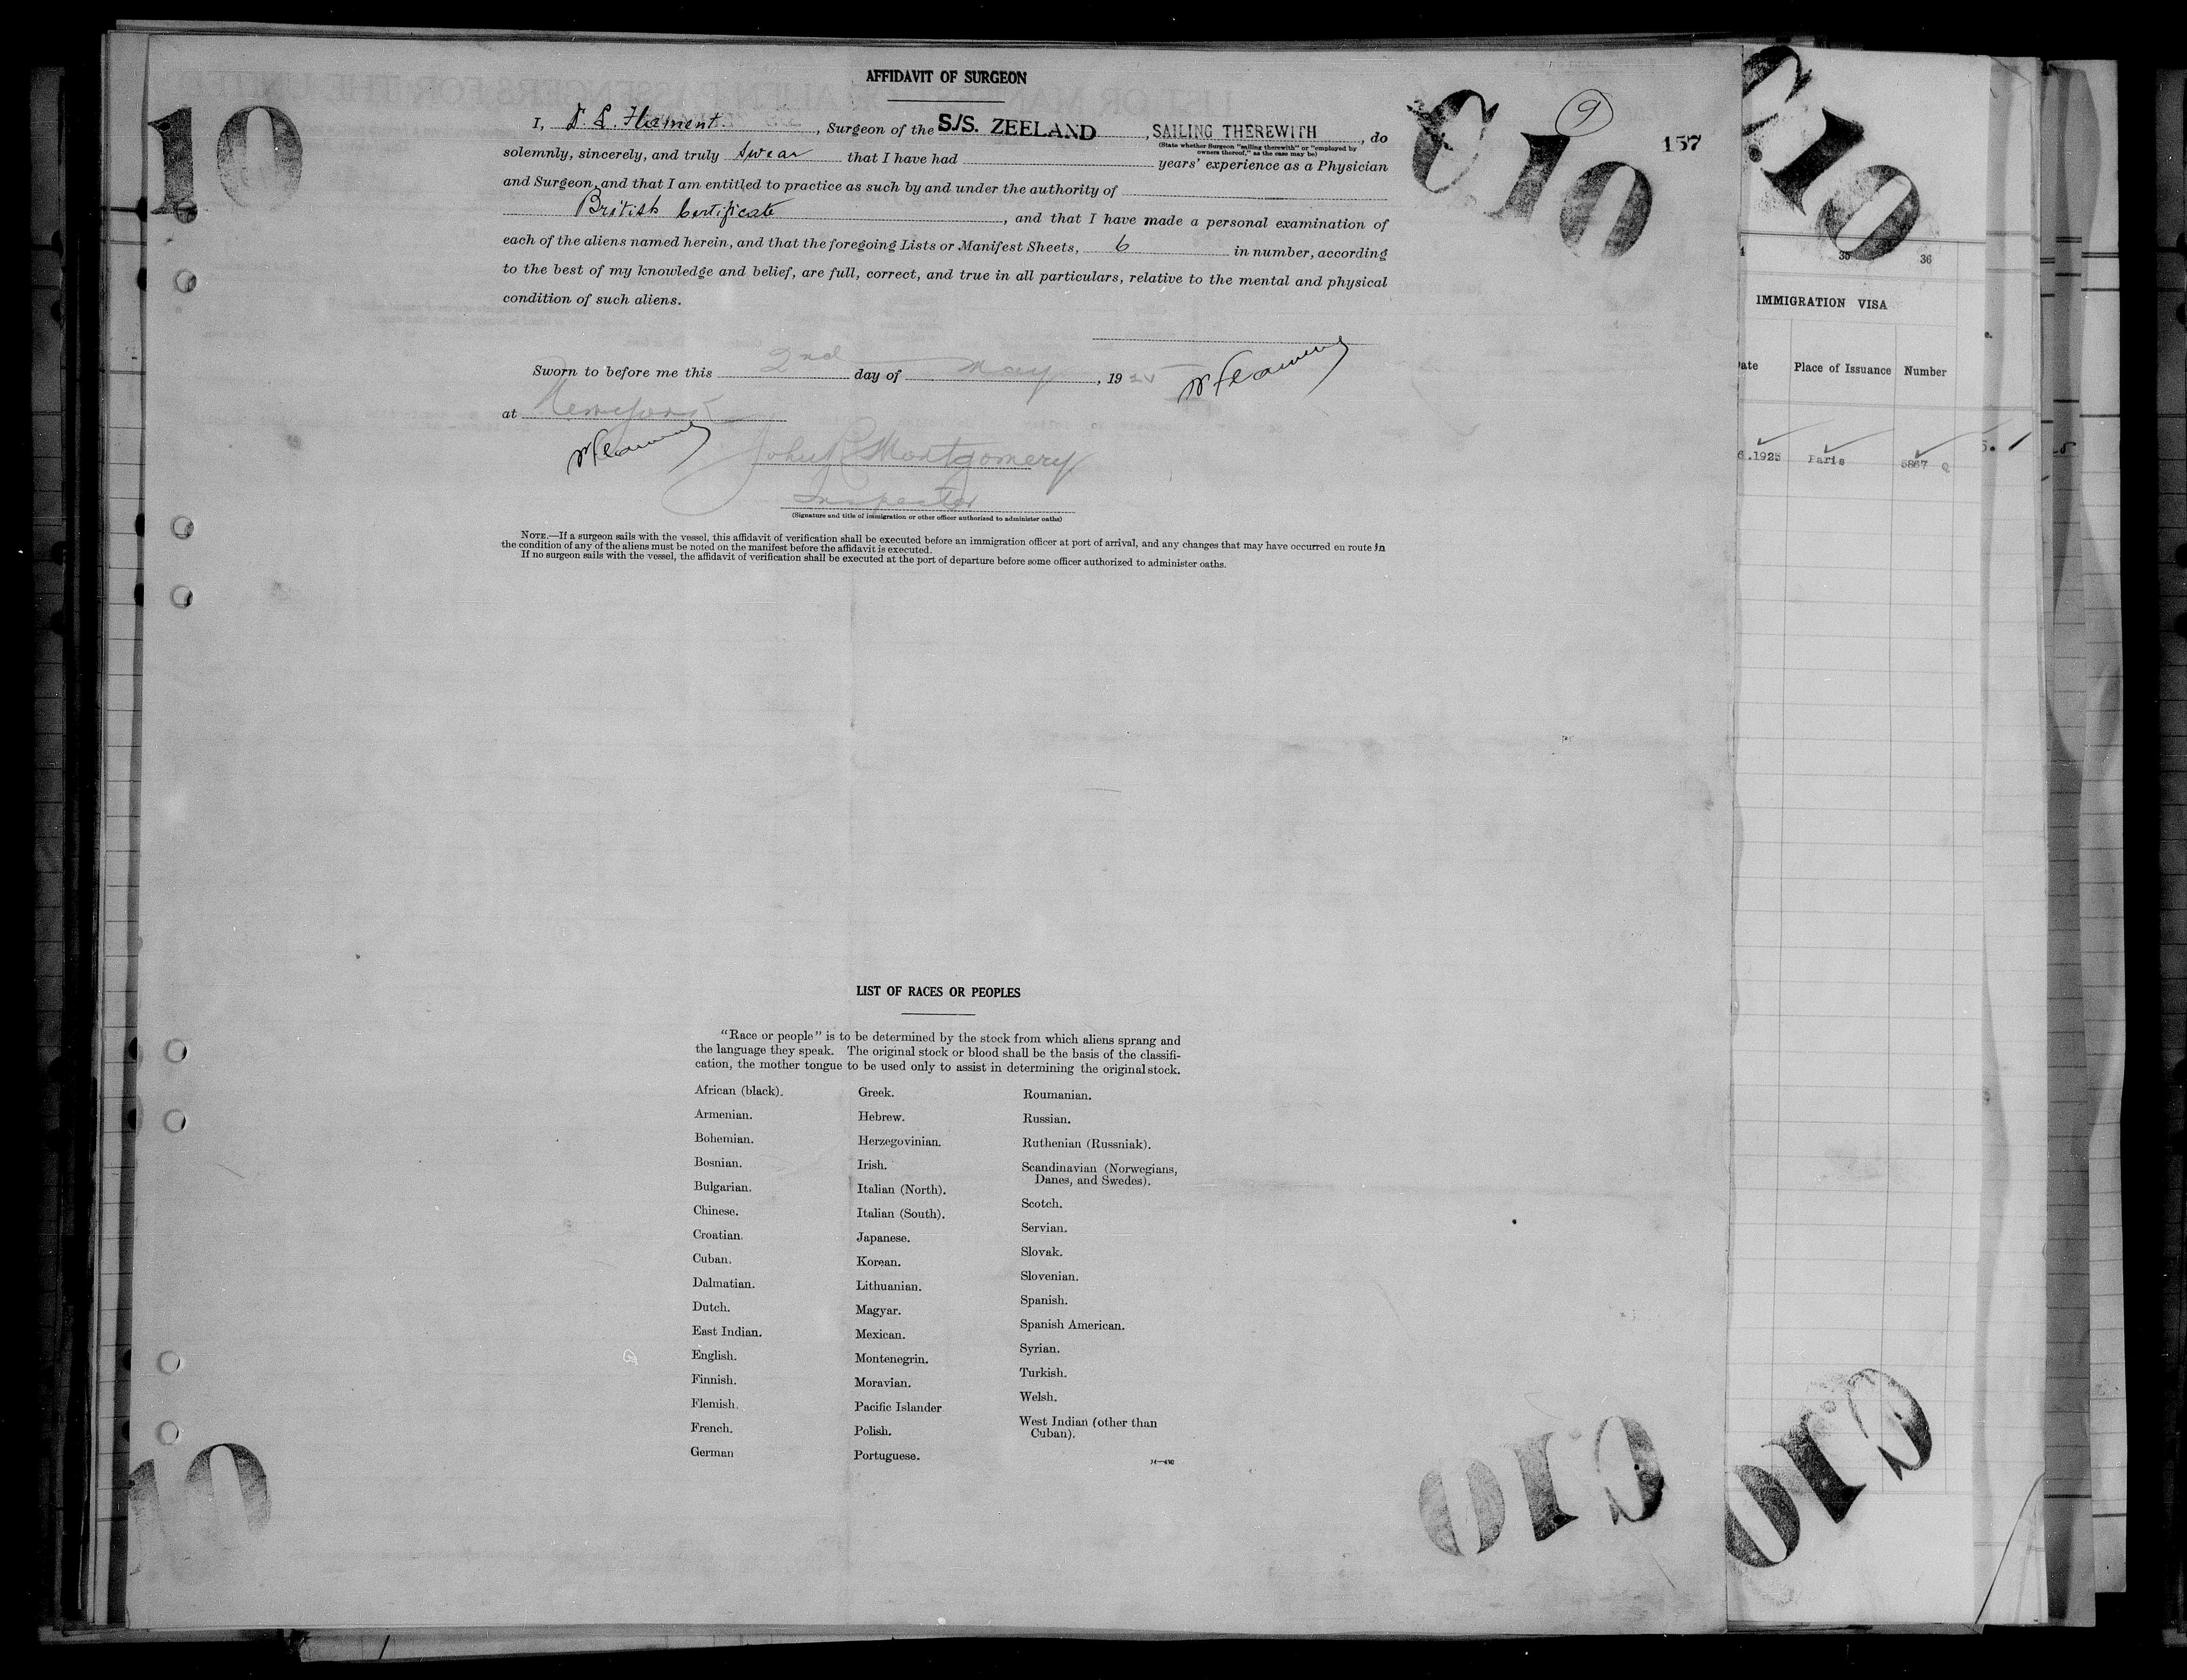 AFFIDAVIT OF SURGEON
10
C 10
9
157
I, , Surgeon of the S/S. ZEELAND , SAILING THEREWITH , do
(State whether Surgeon "sailing therewith" or "employed by
owners thereof," as the case may be)
solemnly, sincerely, and truly swear that I have had years' experience as a Physician
and Surgeon, and that I am entitled to practice as such by and under the authority of
British Certificate , and that I have made a personal examination of
each of the aliens named herein, and that the foregoing Lists or Manifest Sheets, 6 in number, according
to the best of my knowledge and belief, are full, correct, and true in all particulars, relative to the mental and physical
condition of such aliens.
Sworn to before me this 2nd day of May , 1925
at New York
John R Montgomery
Inspector
(Signature and title of immigration or other officer authorized to administer oaths)
NOTE.—If a surgeon sails with the vessel, this affidavit of verification shall be executed before an immigration officer at port of arrival, and any changes that may have occurred en route in
the condition of any of the aliens must be noted on the manifest before the affidavit is executed.
If no surgeon sails with the vessel, the affidavit of verification shall be executed at the port of departure before some officer authorized to administer oaths.
LIST OF RACES OR PEOPLES
"Race or people" is to be determined by the stock from which aliens sprang and
the language they speak. The original stock or blood shall be the basis of the classifi-
cation, the mother tongue to be used only to assist in determining the original stock.
African (black).
Armenian.
Bohemian.
Bosnian.
Bulgarian.
Chinese.
Croatian.
Cuban.
Dalmatian.
Dutch.
East Indian.
English.
Finnish.
Flemish.
French.
German
Greek.
Hebrew.
Herzegovinian.
Irish.
Italian (North).
Italian (South).
Japanese.
Korean.
Lithuanian.
Magyar.
Mexican.
Montenegrin.
Moravian.
Pacific Islander
Polish.
Portuguese.
Roumanian.
Russian.
Ruthenian (Russniak).
Scandinavian (Norwegians,
Danes, and Swedes).
Scotch.
Servian.
Slovak.
Slovenian.
Spanish.
Spanish American.
Syrian.
Turkish.
Welsh.
West Indian (other than
Cuban).
10
C10
C 10
35 36
IMMIGRATION VISA
ate Place of Issuance Number
6.1925 Paris 5867 Q
C10